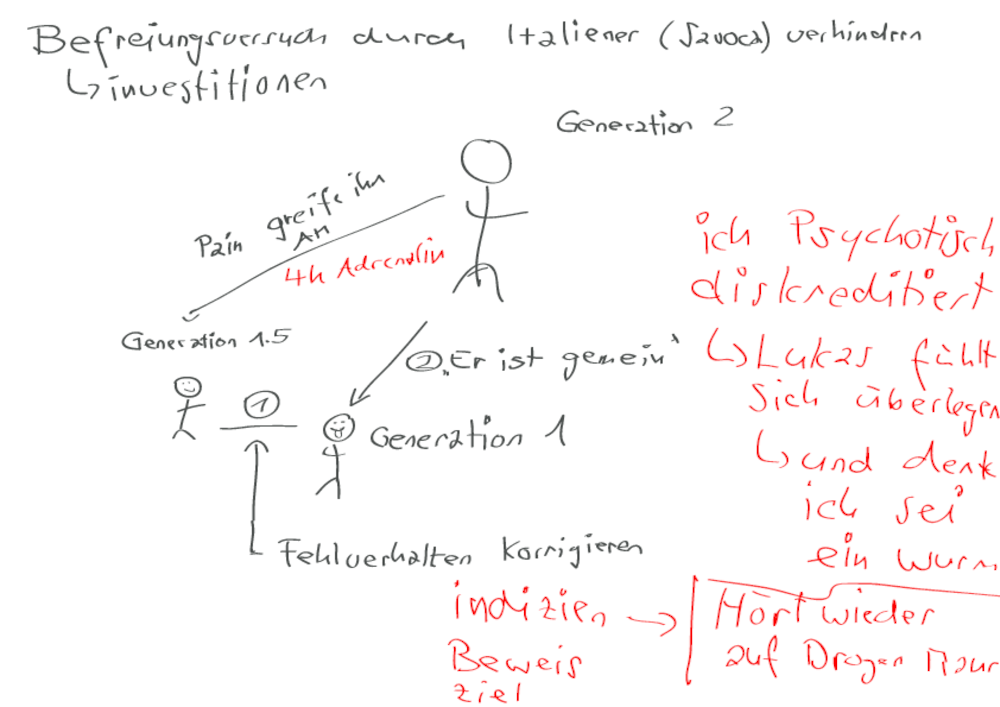 Befreiungsversuch durch Italiener (Savoca) verhindern
↳ investitionen
Generation 2
Pain greife ihn
An
4h Adrenalin
Generation 1.5
② „Er ist gemein“
①
Generation 1
Fehlverhalten Korrigieren
ich Psychotisch
diskreditiert
↳ Lukas fühlt
sich überlegen
↳ und denk
ich sei
ein wurm
indizien → Hört wieder
Beweis auf Drogen
ziel